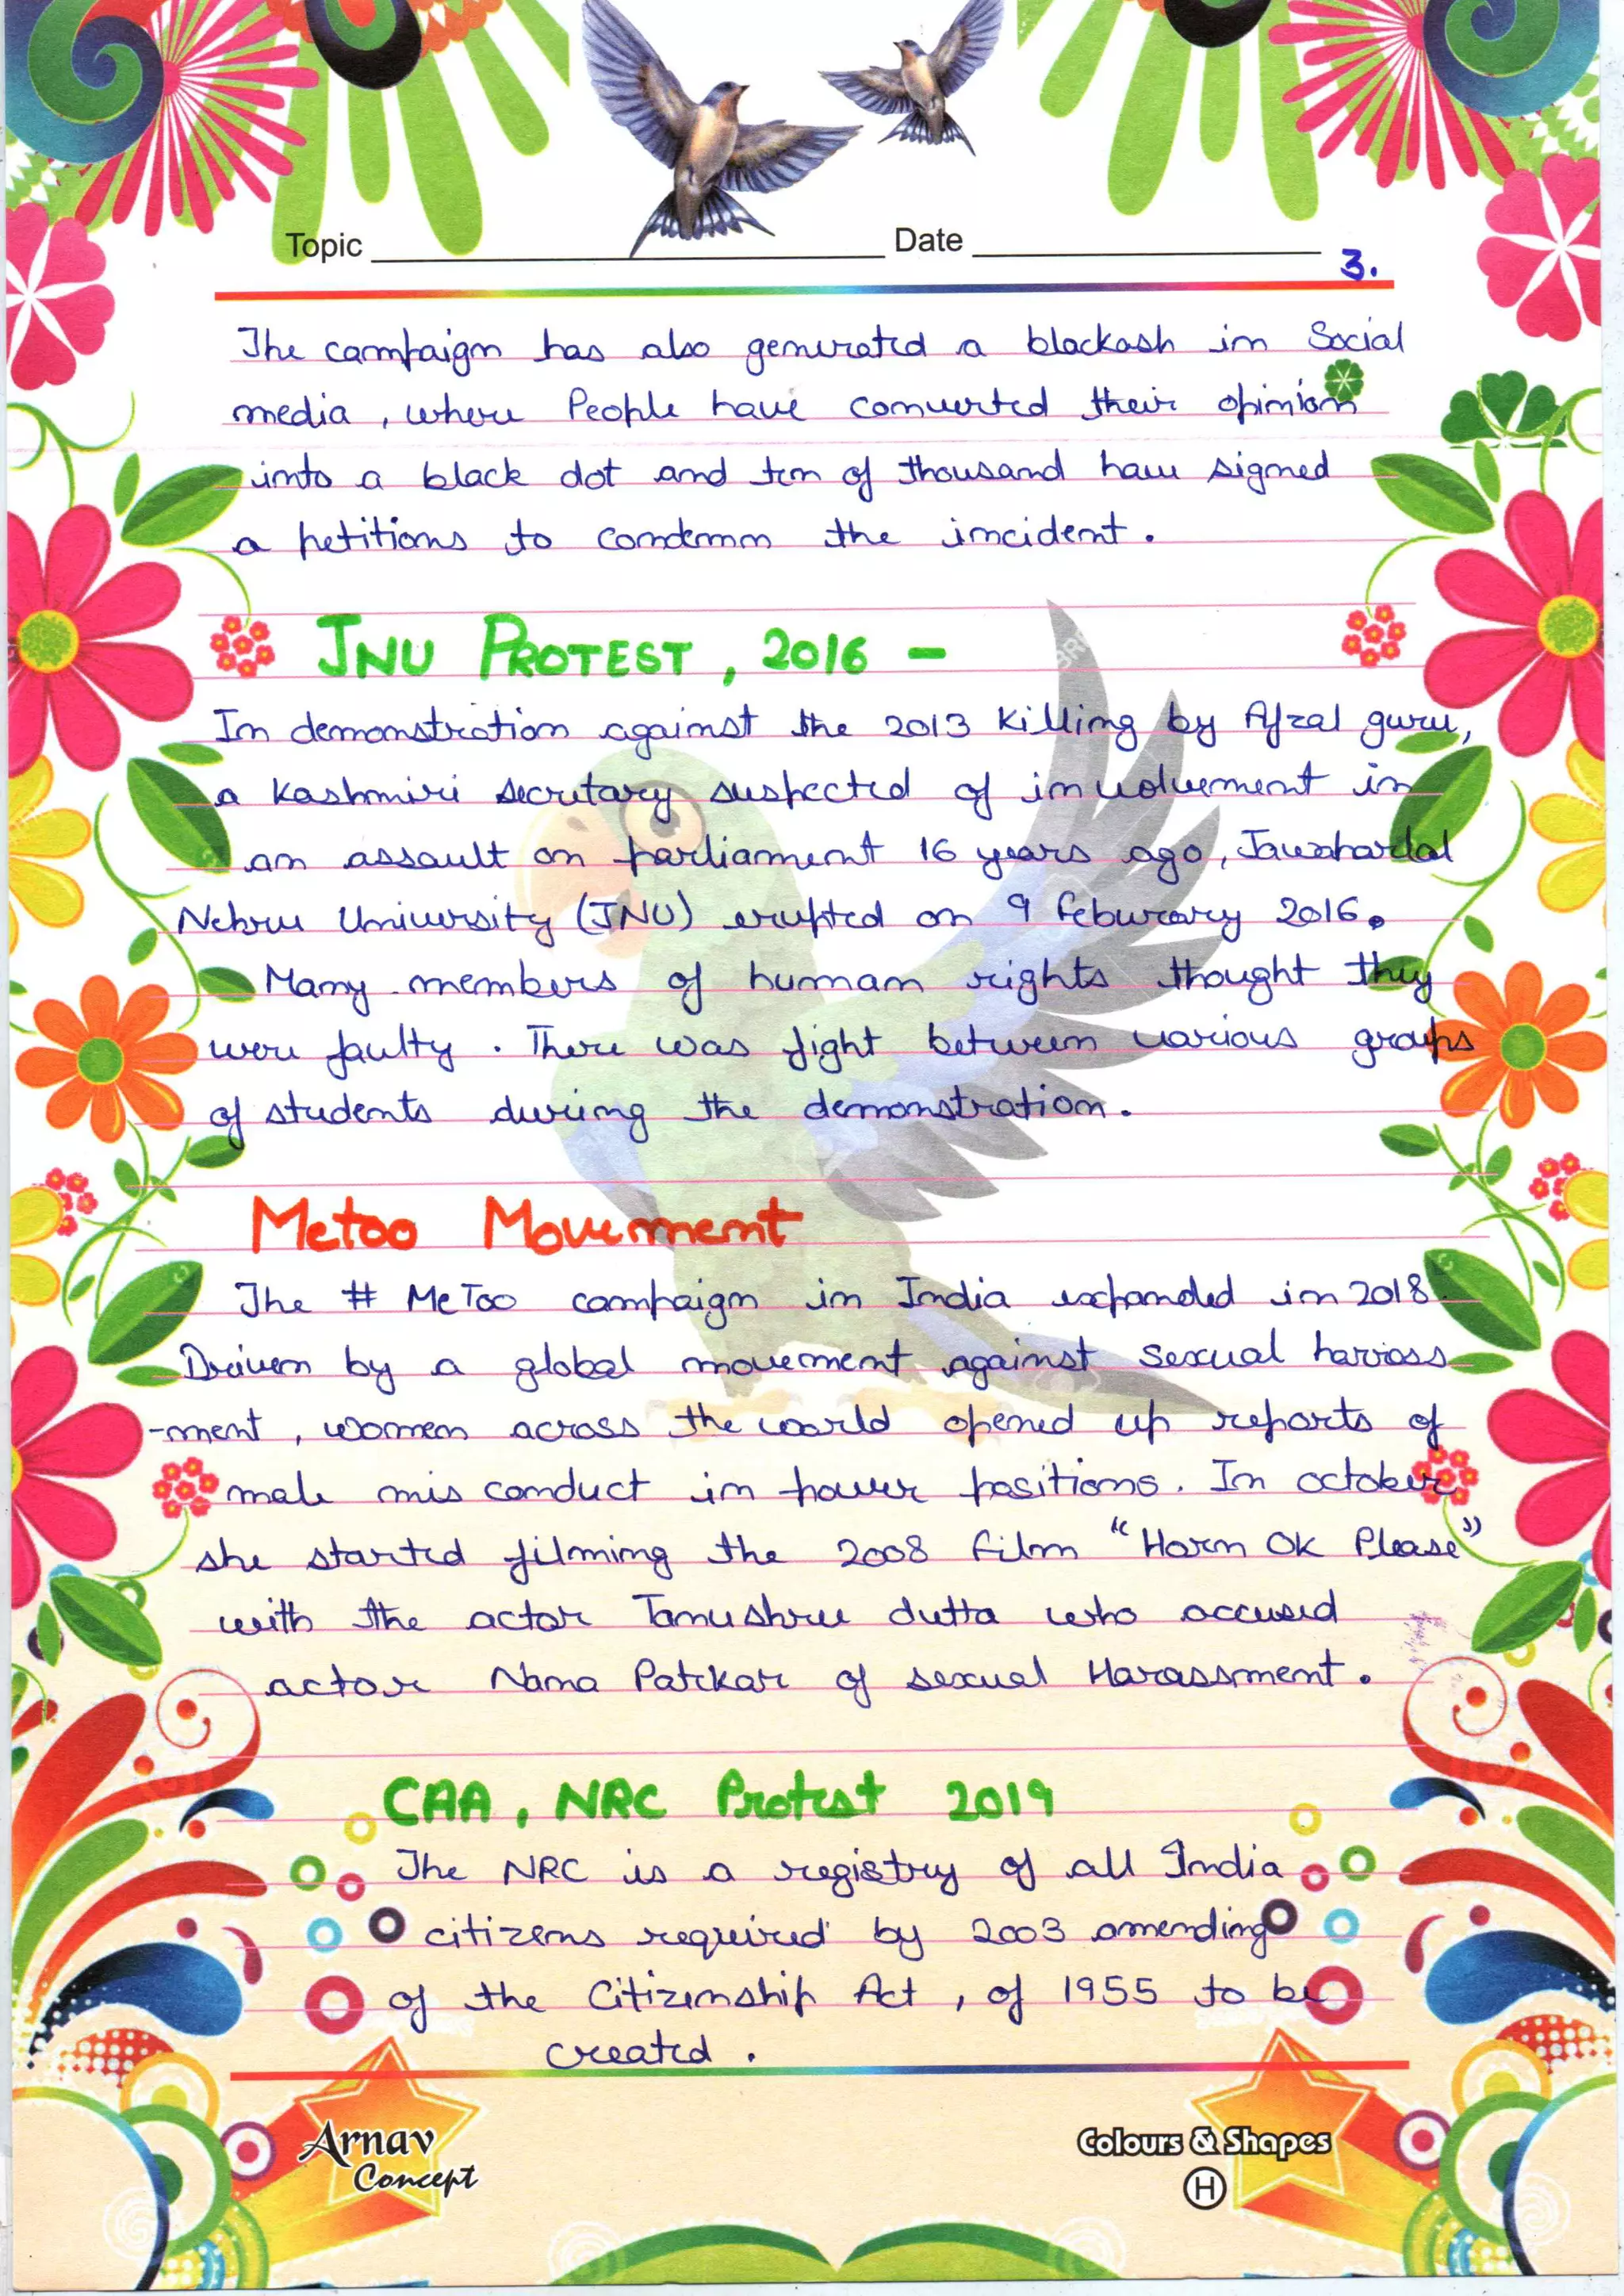 Topic Date
3.
The campaign has also generated a blackash in Social
media , where People have converted their opinion
into a black dot and ten of thousand have signed
a petitions to condemn the incident .
JNU PROTEST , 2016 -
In demonstration against the 2013 Killing by Afzal guru,
a Kashmiri secrutary suspected of involvement in
an assault on parliament 16 years ago , Jawaharlal
Nehru University (JNU) erupted on 9 feburary 2016.
Many members of human rights thought they
were faulty . There was fight between various groups
of students during the demonstration .
Metoo Movement
The # MeToo campaign in India expanded in 2018.
Driven by a global movement against sexual harrass
-ment , women across the world opened up reports of
male mis conduct in power positions . In october
she started filming the 2008 film "Horn OK Please"
with the actor Tanushree dutta who accused
actor Nana Patekar of sexual Harassment .
CAA , NRC Protest 2019
The NRC is a registry of all India
citizens required by 2003 amending
of the Citizenship Act , of 1955 to be
created .
Arnav
Concept
Colours & Shapes
H